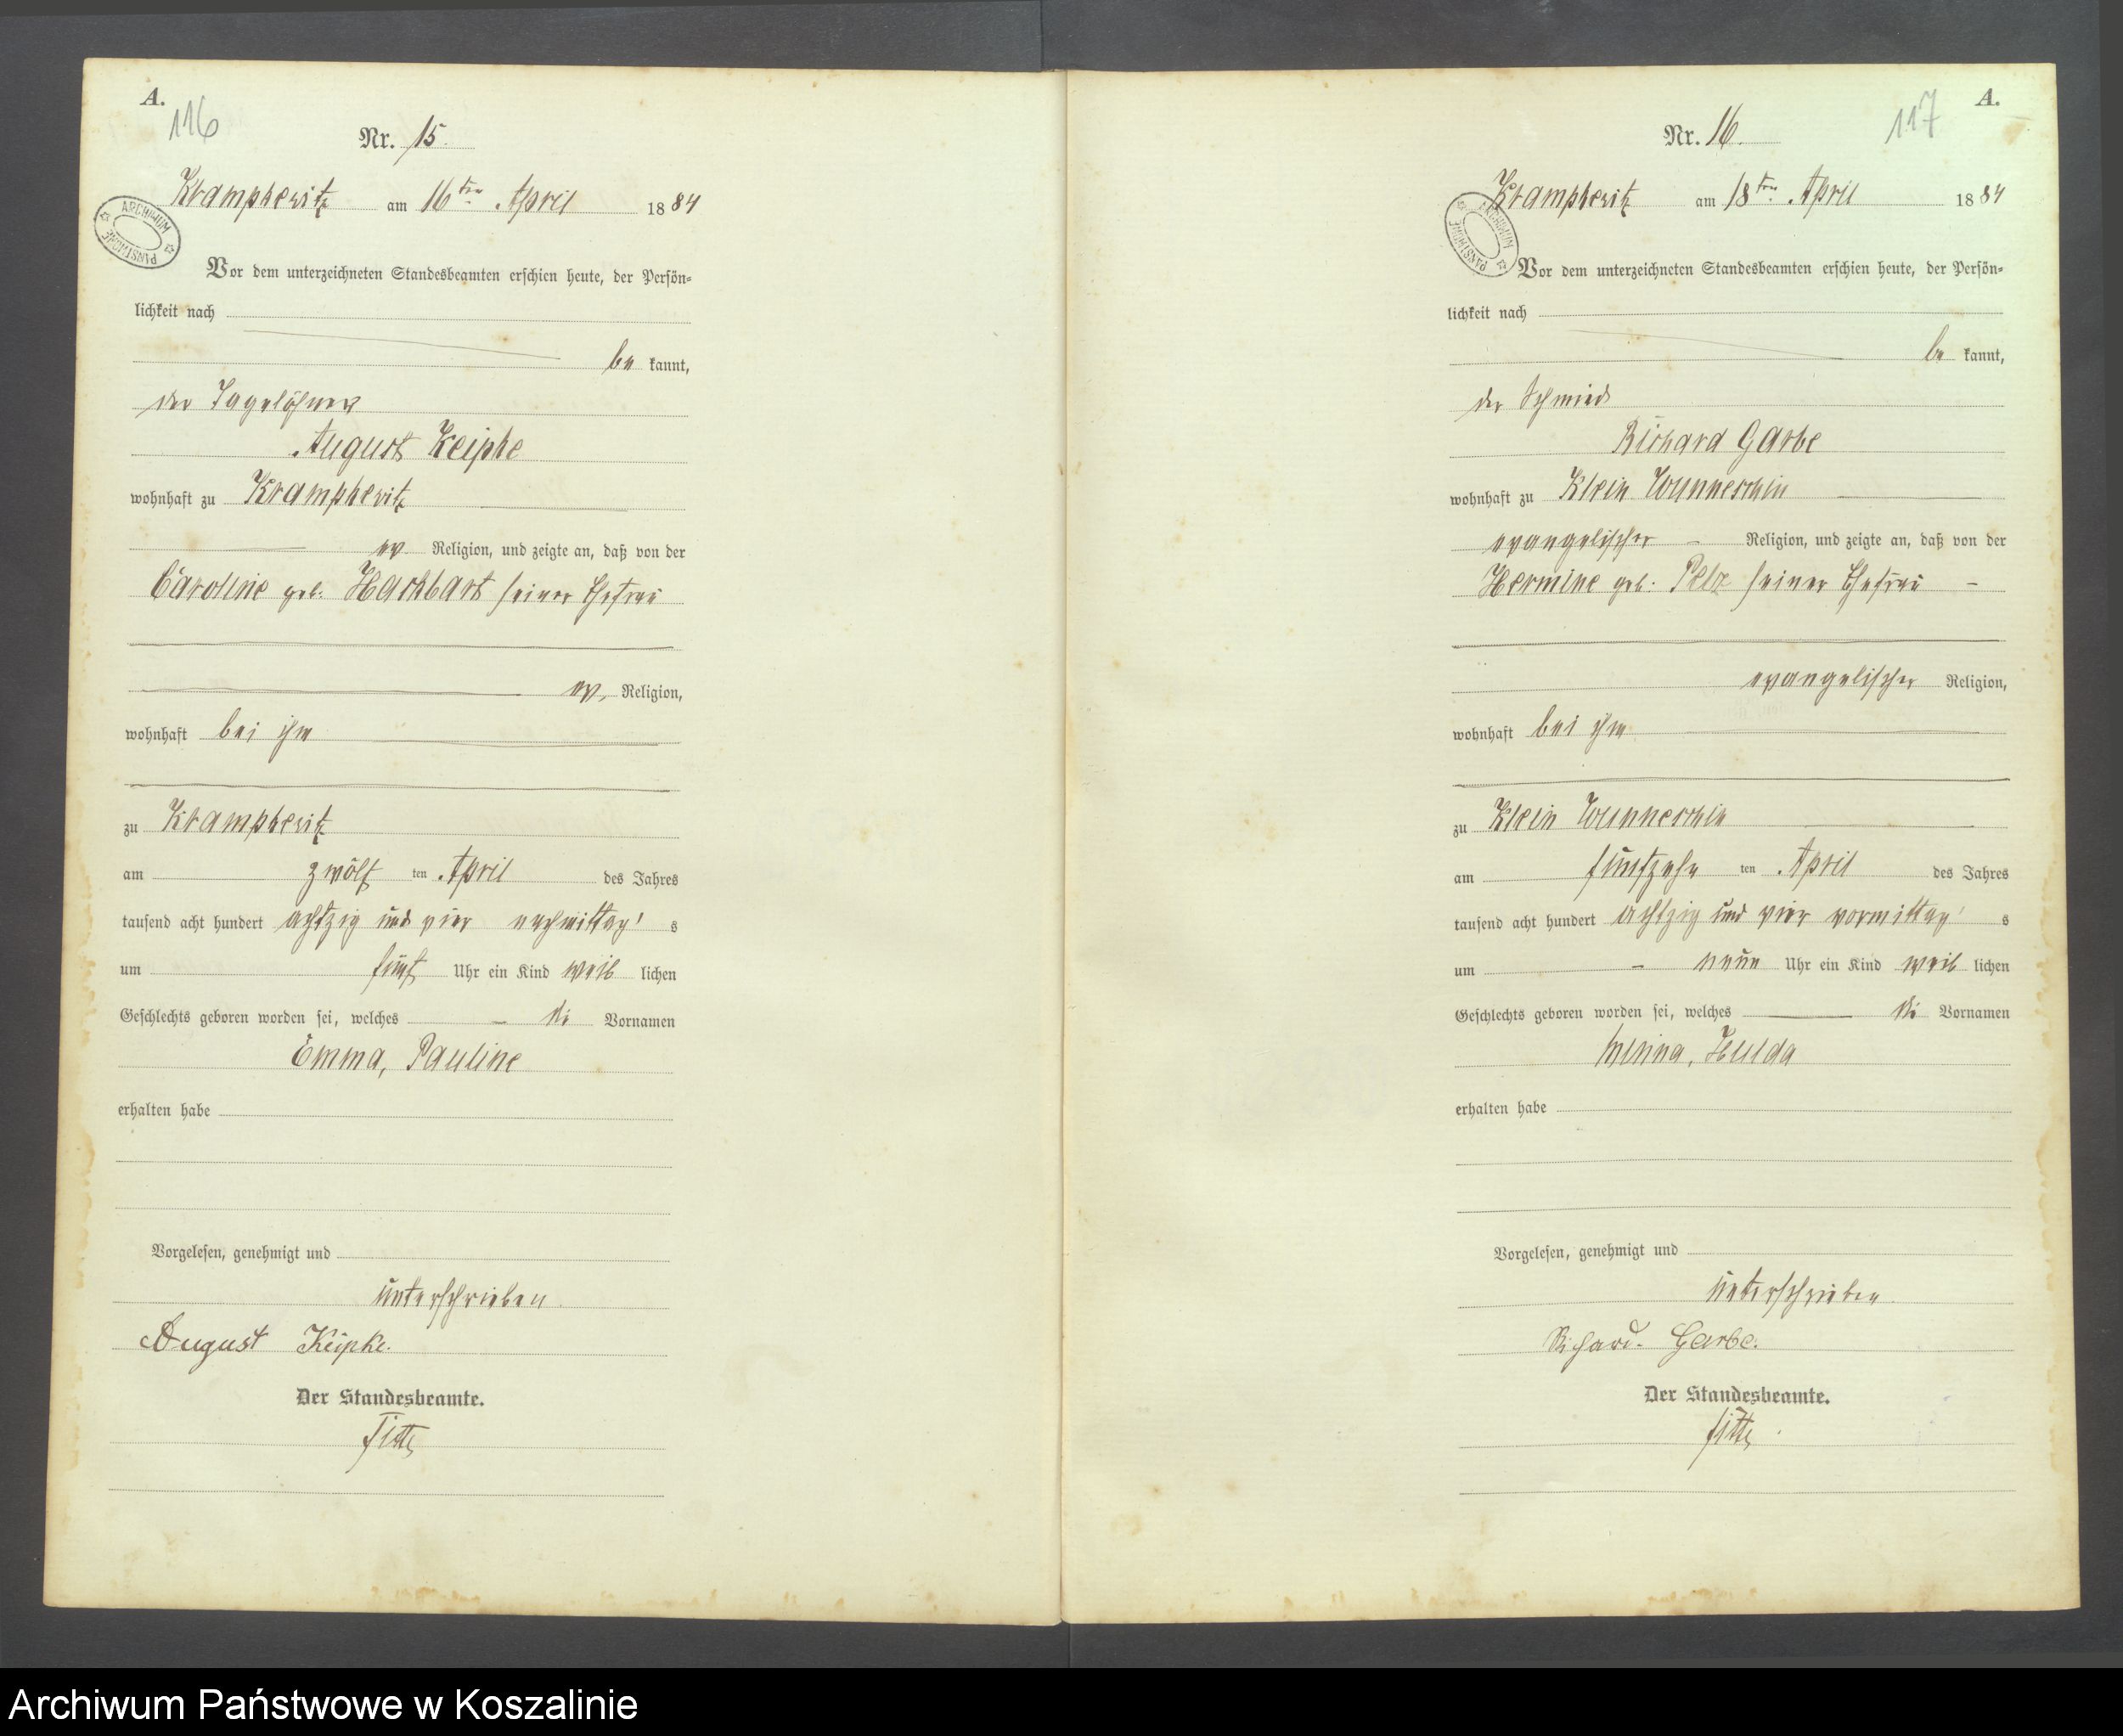 A.
116
Nr. 15.
Krampkewitz am 16ten April 1884
ARCHIWUM PAŃSTWOWE
Vor dem unterzeichneten Standesbeamten erschien heute, der Persön-
lichkeit nach
be kannt,
der Tagelöhner
August Keipke
wohnhaft zu Krampkewitz
ev Religion, und zeigte an, daß von der
Caroline geb. Hackbart seiner Ehefrau
ev. Religion,
wohnhaft bei ihm
zu Krampkewitz
am zwölf ten April des Jahres
tausend acht hundert achtzig und vier nachmittag's
um fünf Uhr ein Kind weib lichen
Geschlechts geboren worden sei, welches die Vornamen
Emma, Pauline
erhalten habe
Vorgelesen, genehmigt und
unterschrieben
August Keipke.
Der Standesbeamte.
A.
117
Nr. 16.
Krampkewitz am 18ten April 1884
ARCHIWUM PAŃSTWOWE
Vor dem unterzeichneten Standesbeamten erschien heute, der Persön-
lichkeit nach
be kannt,
der Schmied
Richard Garbe
wohnhaft zu Klein Wunneschin
evangelischer Religion, und zeigte an, daß von der
Hermine geb. Pelz seiner Ehefrau
evangelischer Religion,
wohnhaft bei ihm
zu Klein Wunneschin
am fünfzehn ten April des Jahres
tausend acht hundert achtzig und vier vormittag's
um neun Uhr ein Kind weib lichen
Geschlechts geboren worden sei, welches die Vornamen
Minna, Hulda
erhalten habe
Vorgelesen, genehmigt und
unterschrieben
Richard Garbe.
Der Standesbeamte.
Archiwum Państwowe w Koszalinie